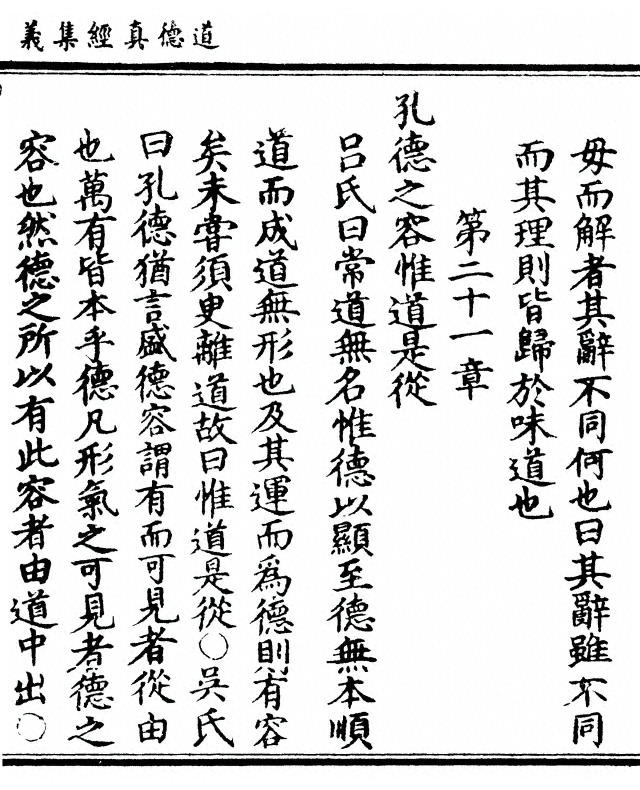 道德真經集義
毋而解者其辭不同何也曰其辭雖不同
而其理則皆歸於味道也
第二十一章
孔德之容惟道是從
吕氏曰常道無名惟德以顯至德無本順
道而成道無形也及其運而為德則有容
矣未嘗須臾離道故曰惟道是從○吳氏
曰孔德猶言盛德容謂有而可見者從由
也萬有皆本乎德凡形氣之可見者德之
容也然德之所以有此容者由道中出○